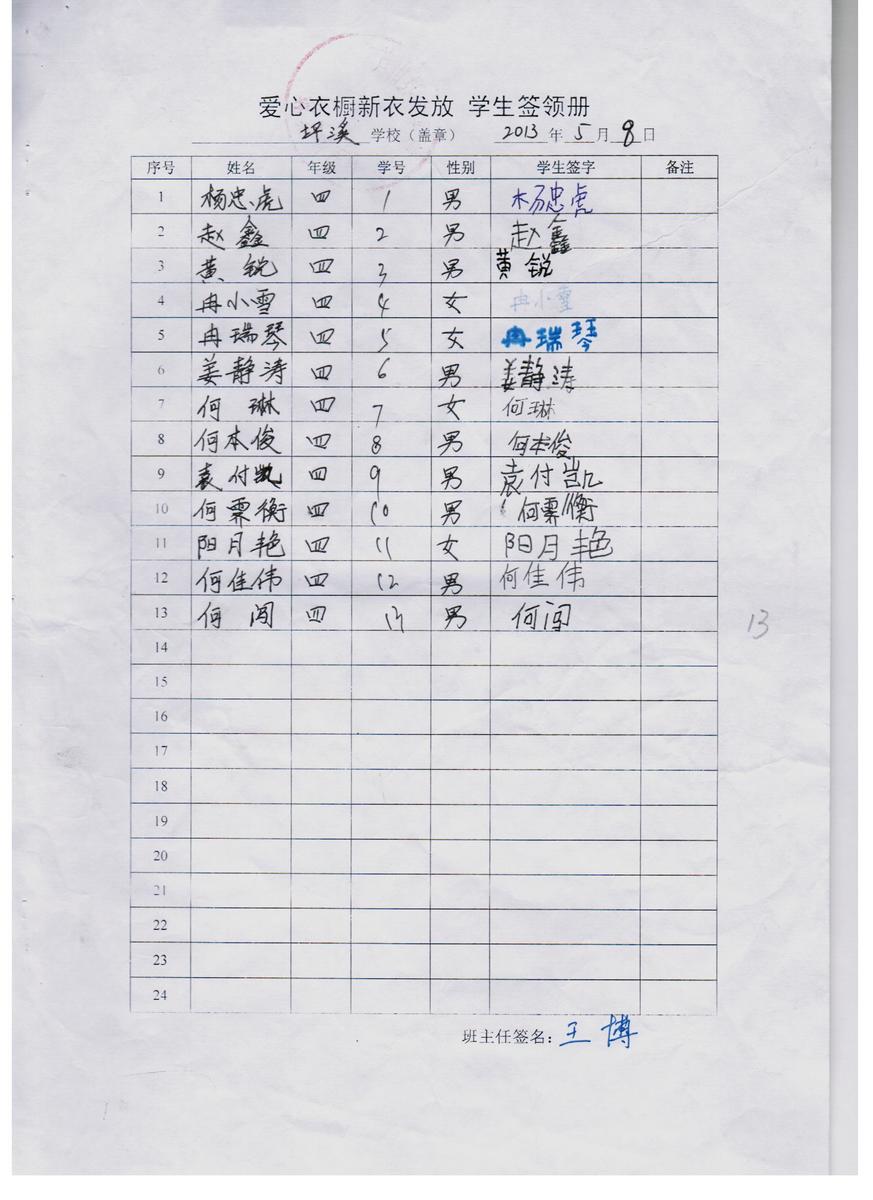 爱心衣橱新衣发放 学生签领册
坪溪 学校（盖章） 2013 年 5 月 8 日
序号 姓名 年级 学号 性别 学生签字 备注
1 杨忠虎 四 1 男 杨忠虎
2 赵鑫 四 2 男 赵鑫
3 黄锐 四 3 男 黄锐
4 冉小雪 四 4 女 冉小雪
5 冉瑞琴 四 5 女 冉瑞琴
6 姜静涛 四 6 男 姜静涛
7 何琳 四 7 女 何琳
8 何本俊 四 8 男 何本俊
9 袁付凯 四 9 男 袁付凯
10 何票衡 四 10 男 何票衡
11 阳月艳 四 11 女 阳月艳
12 何佳伟 四 12 男 何佳伟
13 何闯 四 13 男 何闯
13
14
15
16
17
18
19
20
21
22
23
24
班主任签名：王博